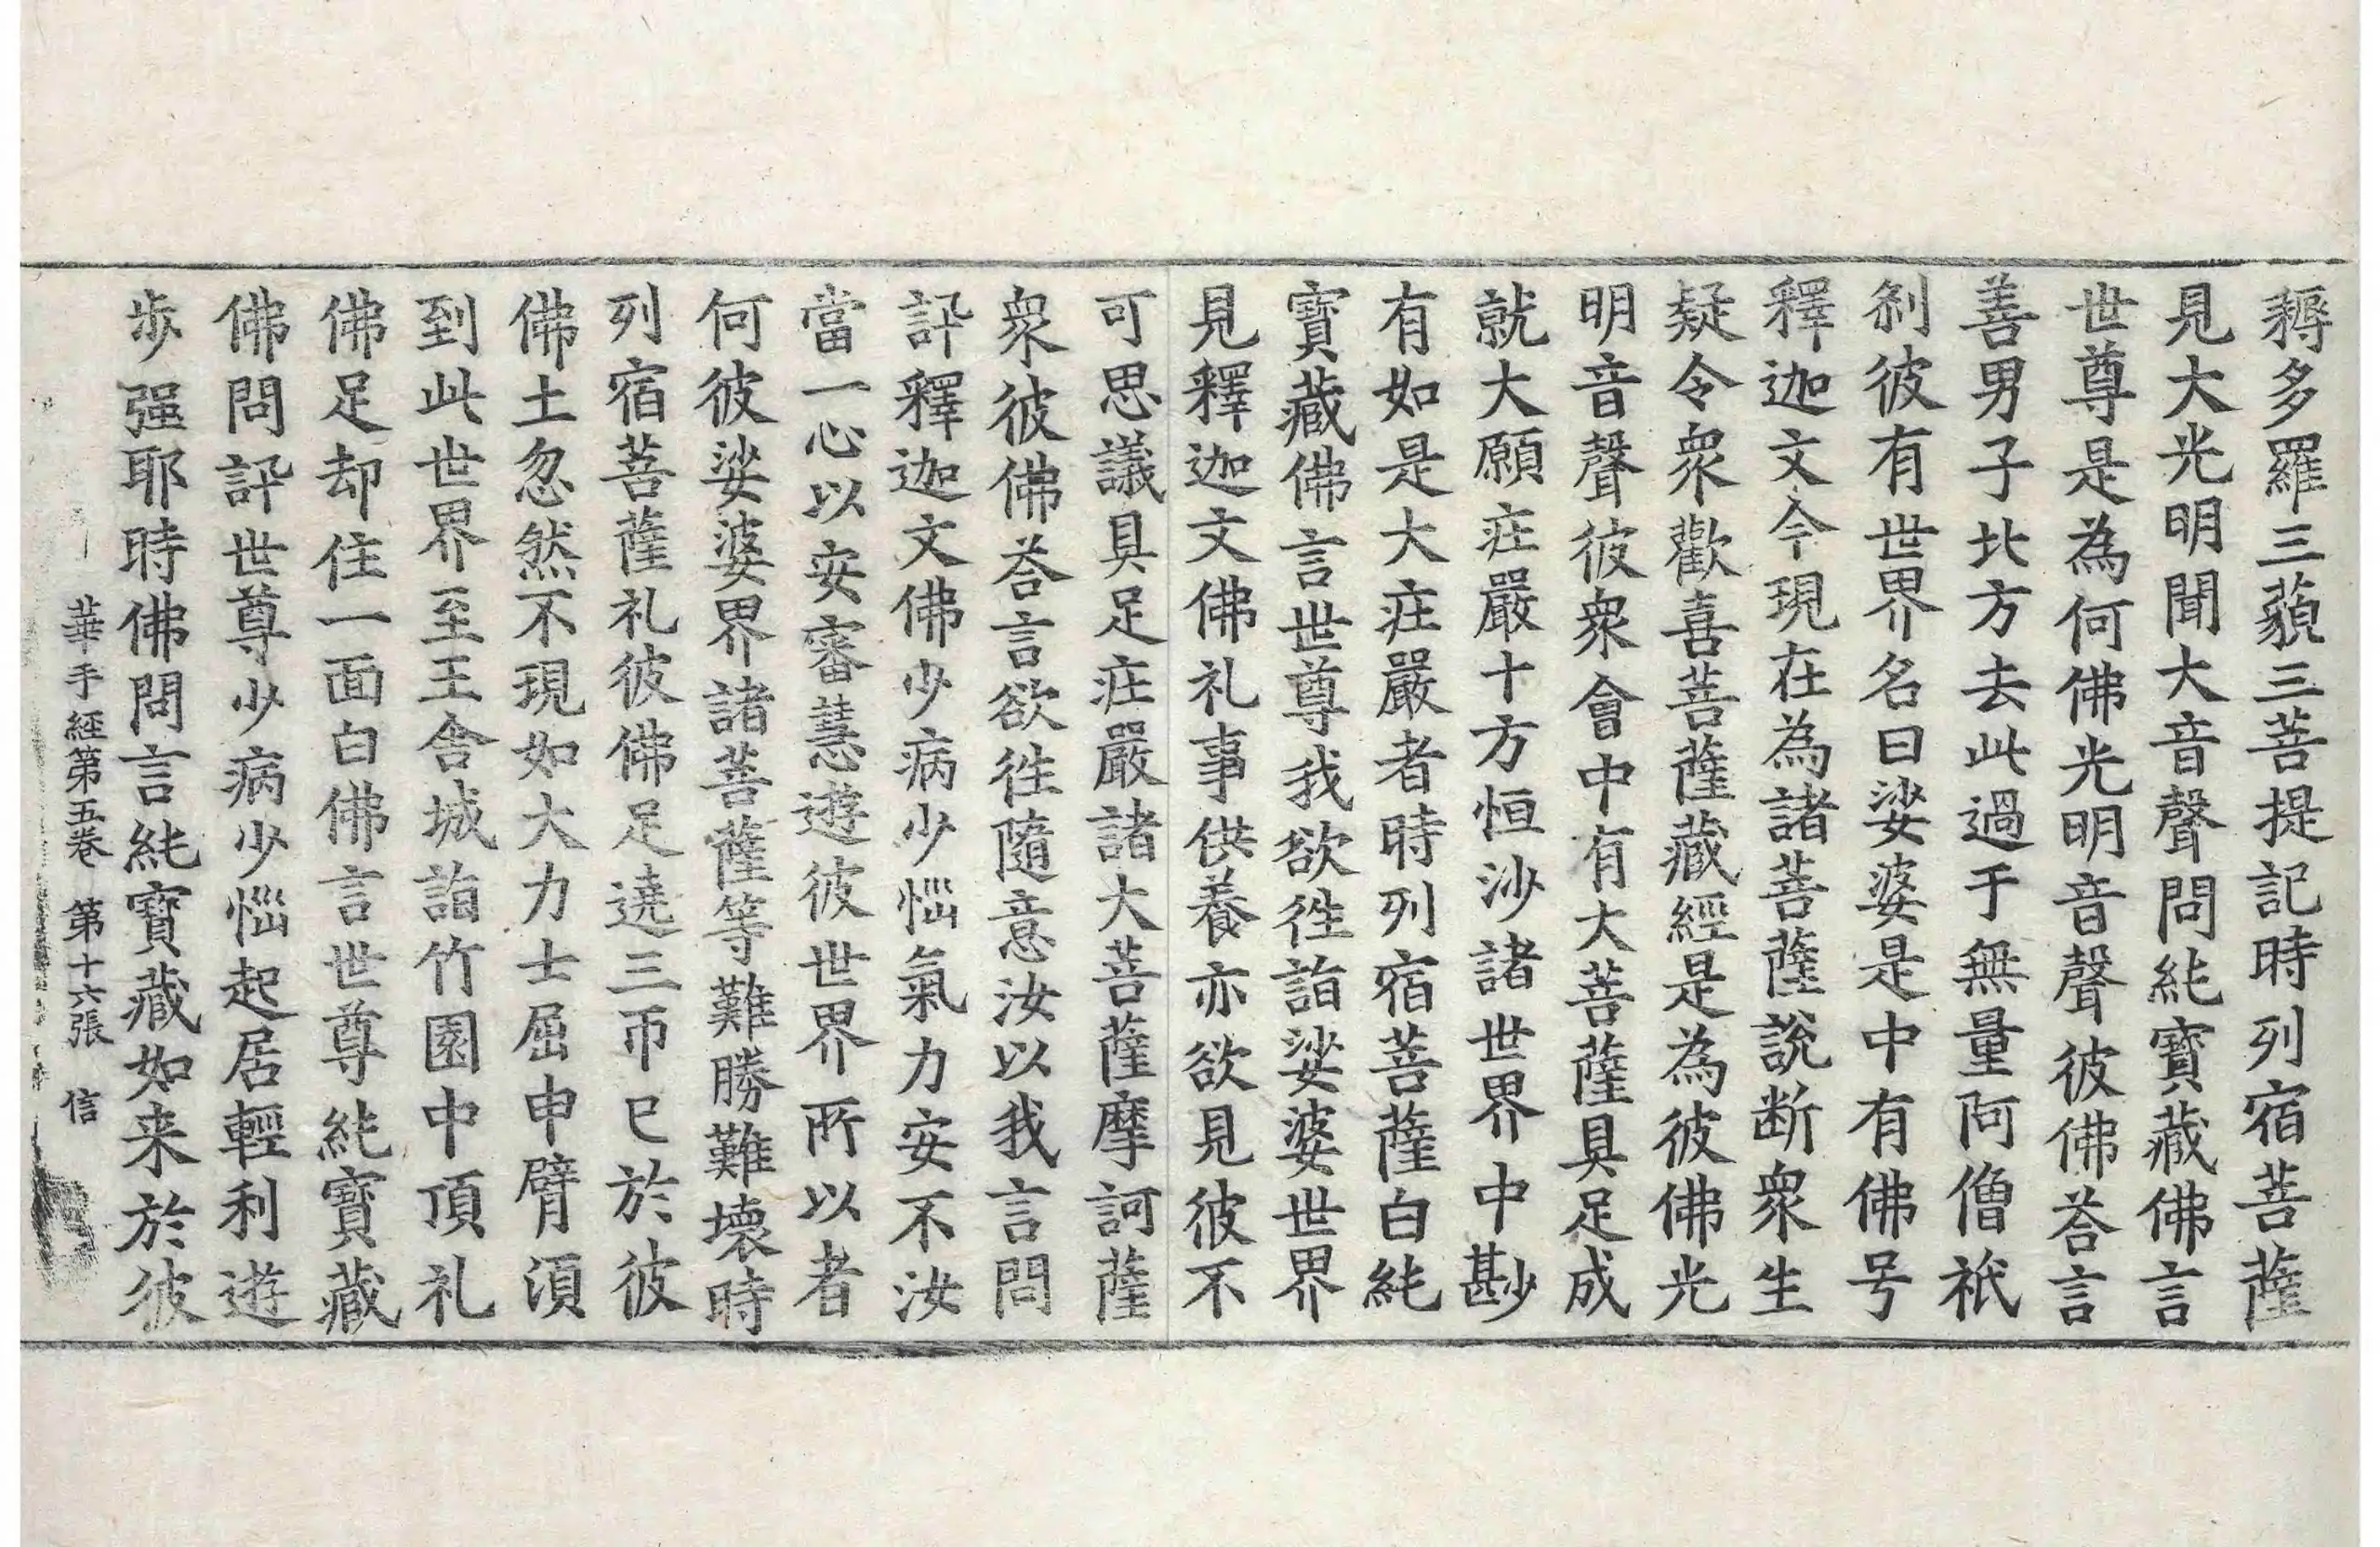 耨多羅三藐三菩提記時列宿菩薩
見大光明聞大音聲問純寶藏佛言
世尊是為何佛光明音聲彼佛荅言
善男子北方去此過于無量阿僧祇
刹彼有世界名曰娑婆是中有佛号
釋迦文今現在為諸菩薩說断衆生
疑令衆歡喜菩薩藏經是為彼佛光
明音聲彼衆會中有大菩薩具足成
就大願疘嚴十方恒沙諸世界中尠
有如是大疘嚴者時列宿菩薩白純
寶藏佛言世尊我欲徃詣娑婆世界
見釋迦文佛礼事供養亦欲見彼不
可思議具足疘嚴諸大菩薩摩訶薩
衆彼佛荅言欲徃隨意汝以我言問
訊釋迦文佛少病少惱氣力安不汝
當一心以安審慧遊彼世界所以者
何彼娑婆界諸菩薩等難勝難壊時
列宿菩薩礼彼佛足遶三帀已於彼
佛土忽然不現如大力士屈申臂湏
到此世界至王舎城詣竹園中頂礼
佛足却住一面白佛言世尊純寶藏
佛問訊世尊少病少惱起居輕利遊
歩强耶時佛問言純寶藏如来於彼
華手經第五卷 第十六張 信